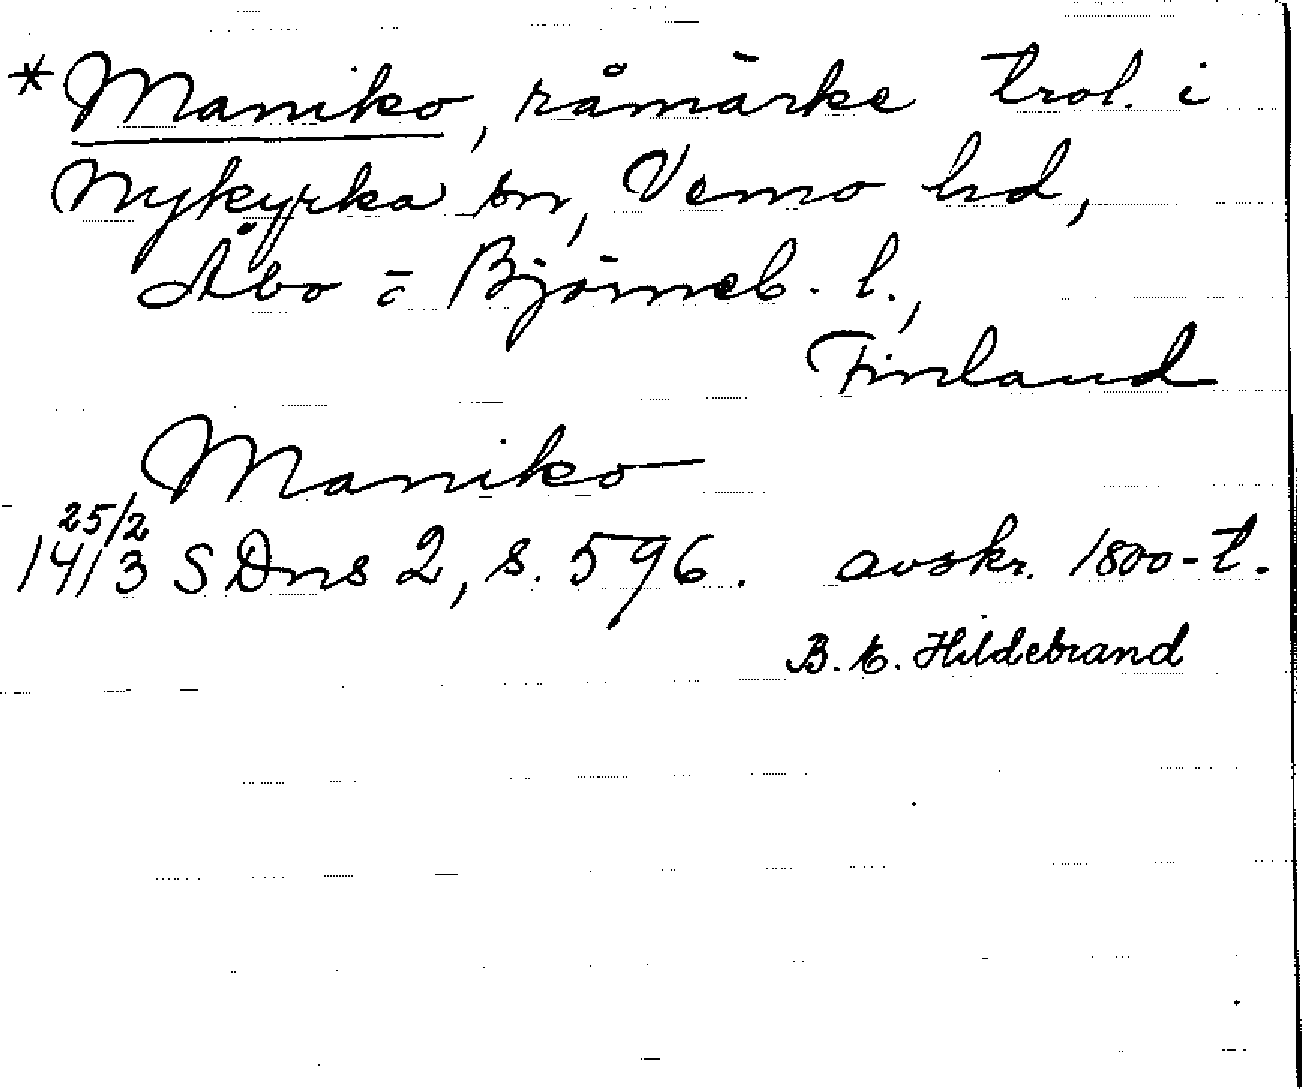 *Maniko, råmärke trol. i
Nykyrka sn, Vemo hd,
Åbo o Björneb. l.,
Finland
Maniko
25/2
14/3 SDns 2, s. 596. avskr. 1800-t.
B. E. Hildebrand